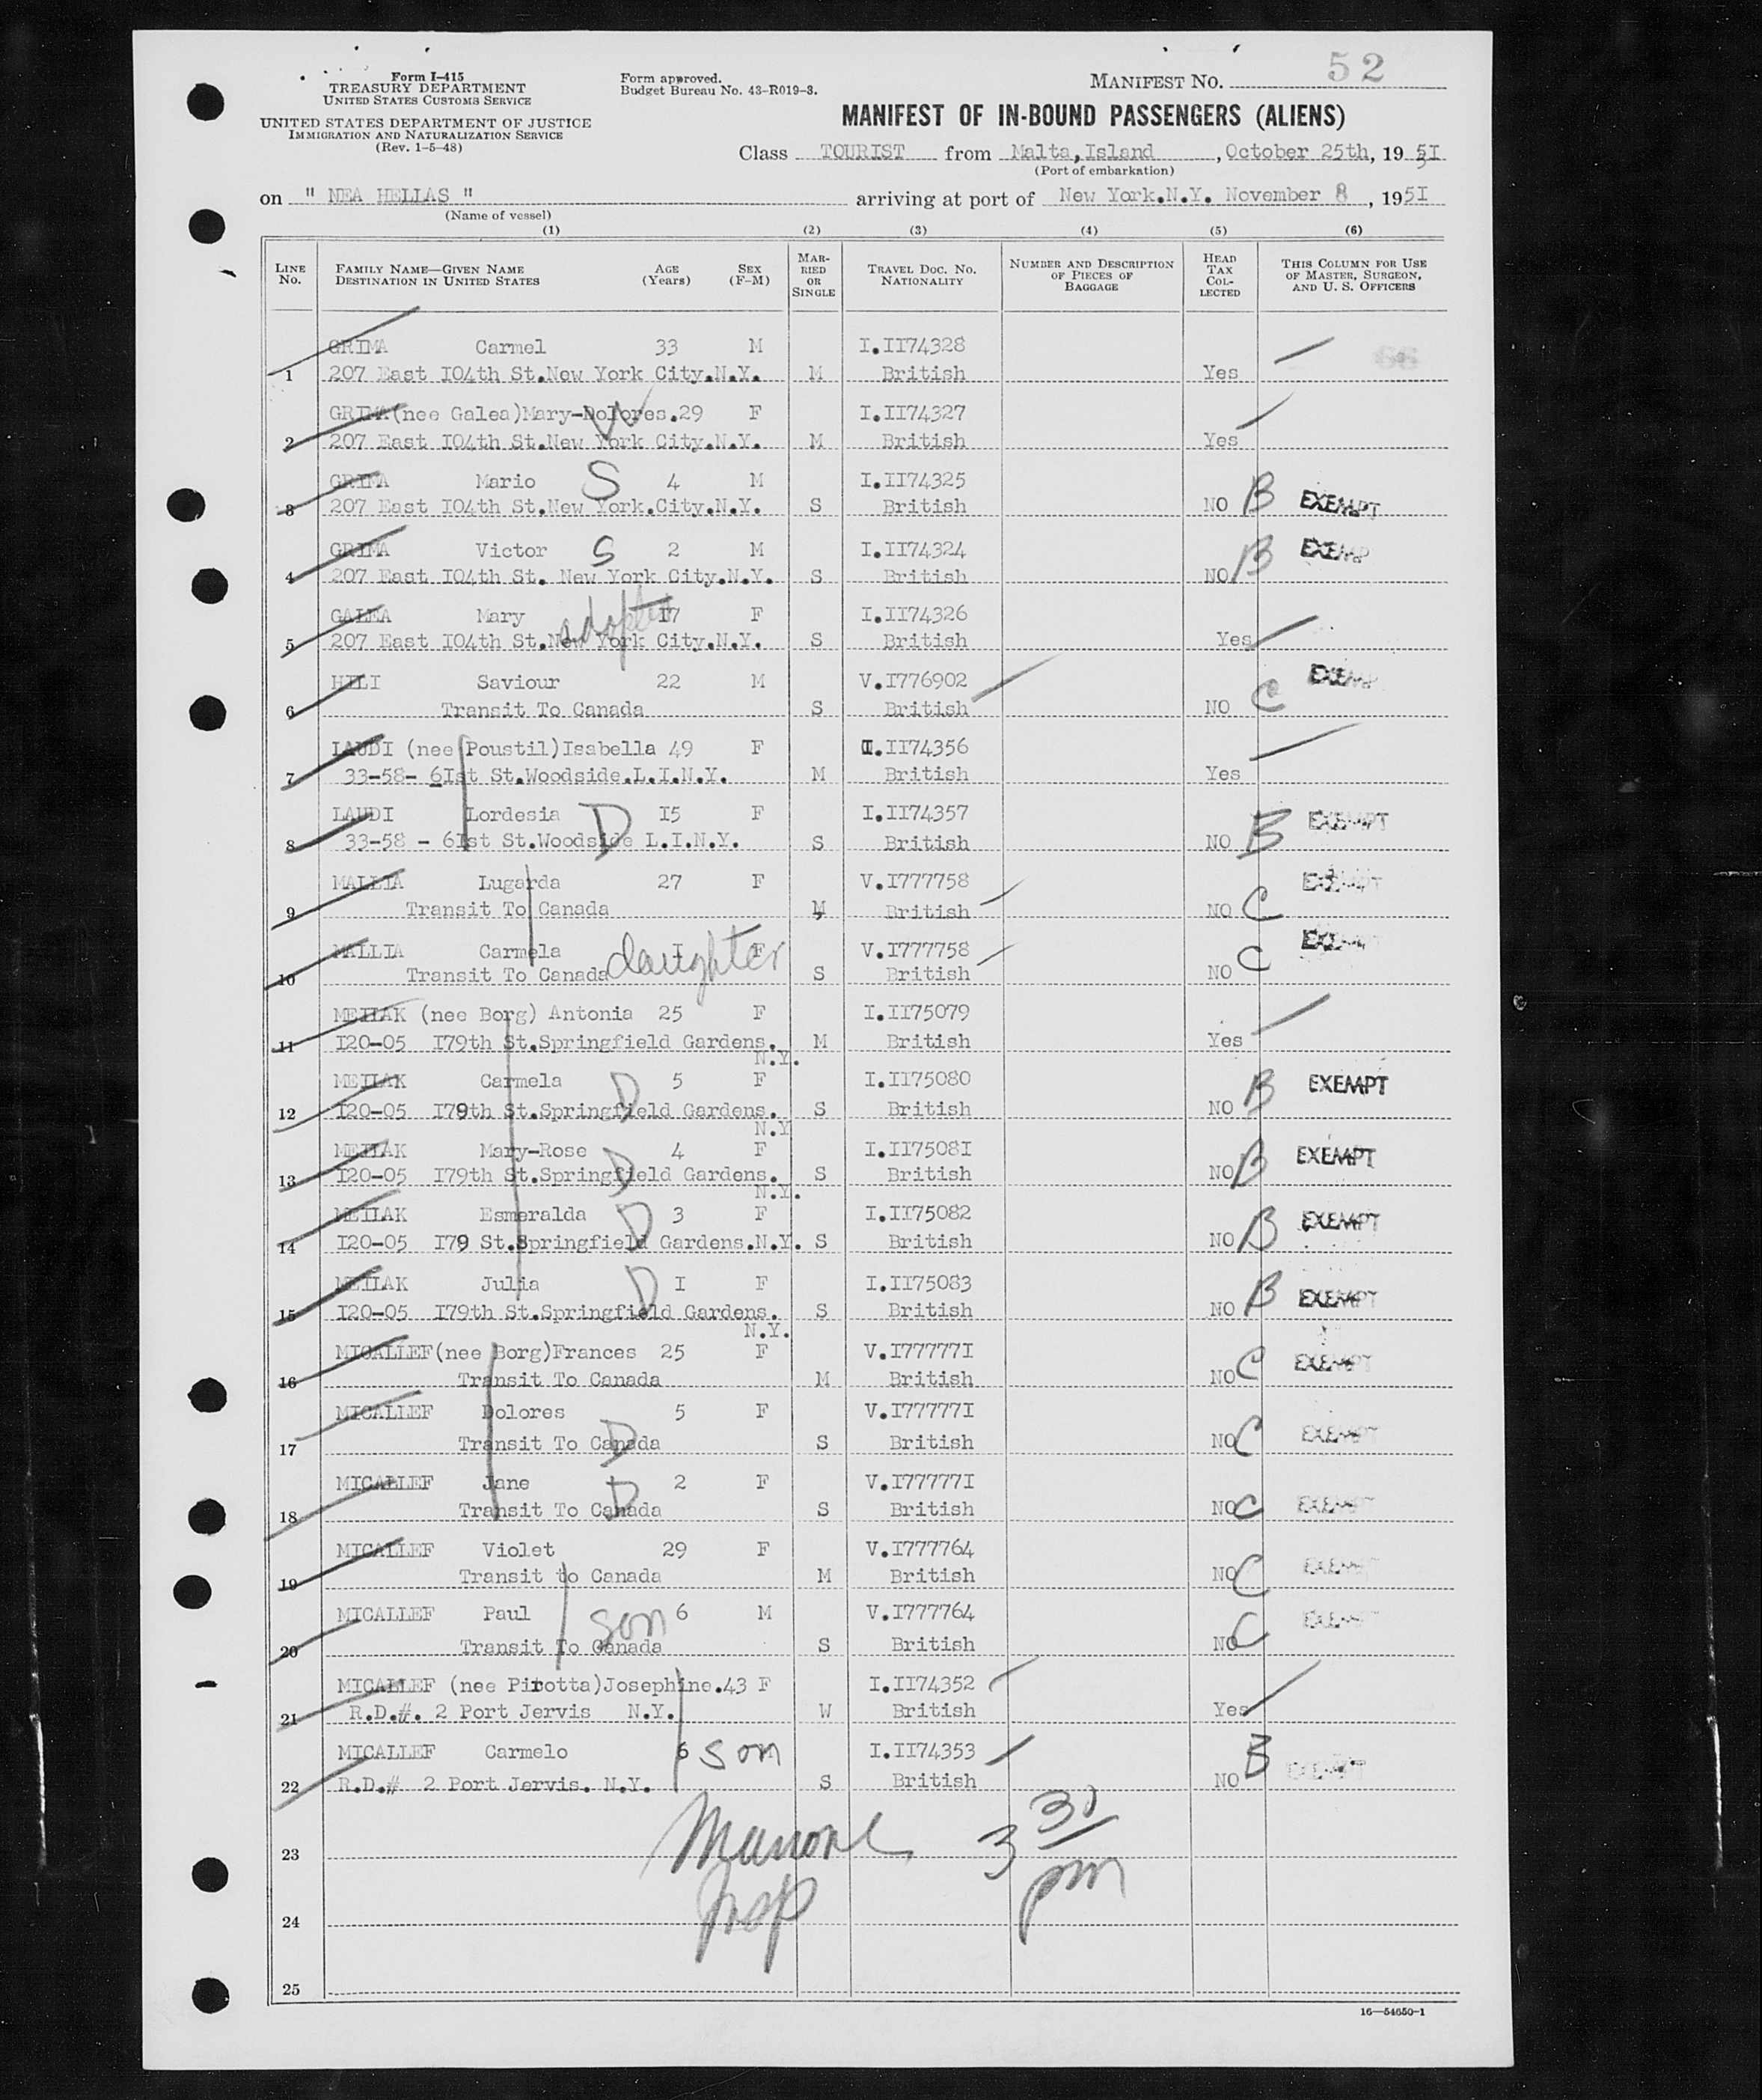 Form I-415
TREASURY DEPARTMENT
UNITED STATES CUSTOMS SERVICE
UNITED STATES DEPARTMENT OF JUSTICE
IMMIGRATION AND NATURALIZATION SERVICE
(Rev. 1-5-48)
Form approved.
Budget Bureau No. 43-R019-3.
MANIFEST No. 52
MANIFEST OF IN-BOUND PASSENGERS (ALIENS)
Class TOURIST from Malta,Island , October 25th, 19 51
(Port of embarkation)
on " NEA HELLAS " arriving at port of New York.N.Y. November 8 , 1951
(Name of vessel)
(1) (2) (3) (4) (5) (6)
LINE No. FAMILY NAME—GIVEN NAME DESTINATION IN UNITED STATES AGE (Years) SEX (F-M) MARRIED OR SINGLE TRAVEL DOC. NO. NATIONALITY NUMBER AND DESCRIPTION OF PIECES OF BAGGAGE HEAD TAX COLLECTED THIS COLUMN FOR USE OF MASTER, SURGEON, AND U. S. OFFICERS
GRIMA Carmel 33 M I.II74328
1 207 East I04th St.New York City.N.Y. M British Yes
GRIMA(nee Galea)Mary-Dolores.29 F I.II74327 W
2 207 East I04th St.New York City.N.Y. M British Yes
GRIMA Mario S 4 M I.II74325
3 207 East I04th St.New York.City.N.Y. S British NO B EXEMPT
GRIMA Victor S 2 M I.II74324
4 207 East I04th St. New York City.N.Y. S British NO B EXEMP
GALEA Mary adopted I7 F I.II74326
5 207 East I04th St.New York City.N.Y. S British Yes
HILI Saviour 22 M V.I776902
6 Transit To Canada S British NO C EXEMP
LAUDI (nee Poustil)Isabella 49 F I.II74356
7 33-58- 6Ist St.Woodside.L.I.N.Y. M British Yes
LAUDI Lordesia D I5 F I.II74357
8 33-58 - 6Ist St.Woodside L.I.N.Y. S British NO B EXEMPT
MALLIA Lugarda 27 F V.I777758
9 Transit To Canada M British NO C EXEMPT
MALLIA Carmela I F V.I777758
10 Transit To Canada daughter S British NO C
MEILAK (nee Borg) Antonia 25 F I.II75079
11 I20-05 I79th St.Springfield Gardens. N.Y. M British Yes
MEILAK Carmela D 5 F I.II75080
12 I20-05 I79th St.Springfield Gardens. N.Y S British NO B EXEMPT
MEILAK Mary-Rose D 4 F I.II7508I
13 I20-05 I79th St.Springfield Gardens. N.Y. S British NO B EXEMPT
MEILAK Esmeralda D 3 F I.II75082
14 I20-05 I79 St.Springfield Gardens.N.Y. S British NO B EXEMPT
MEILAK Julia D I F I.II75083
15 I20-05 I79th St.Springfield Gardens. N.Y. S British NO B EXEMPT
MICALLEF(nee Borg)Frances 25 F V.I77777I
16 Transit To Canada M British NO C EXEMPT
MICALLEF Dolores D 5 F V.I77777I
17 Transit To Canada S British NO C EXEMPT
MICALLEF Jane D 2 F V.I77777I
18 Transit To Canada S British NO C EXEMPT
MICALLEF Violet 29 F V.I777764
19 Transit to Canada M British NO C
MICALLEF Paul son 6 M V.I777764
20 Transit To Canada S British NO C
MICALLEF (nee Pirotta)Josephine.43 F I.II74352
21 R.D.#. 2 Port Jervis N.Y. W British Yes
MICALLEF Carmelo 6 son I.II74353
22 R.D.# 2 Port Jervis. N.Y. S British NO B
23
24
25
Insp
3 30 pm
16—54650-1